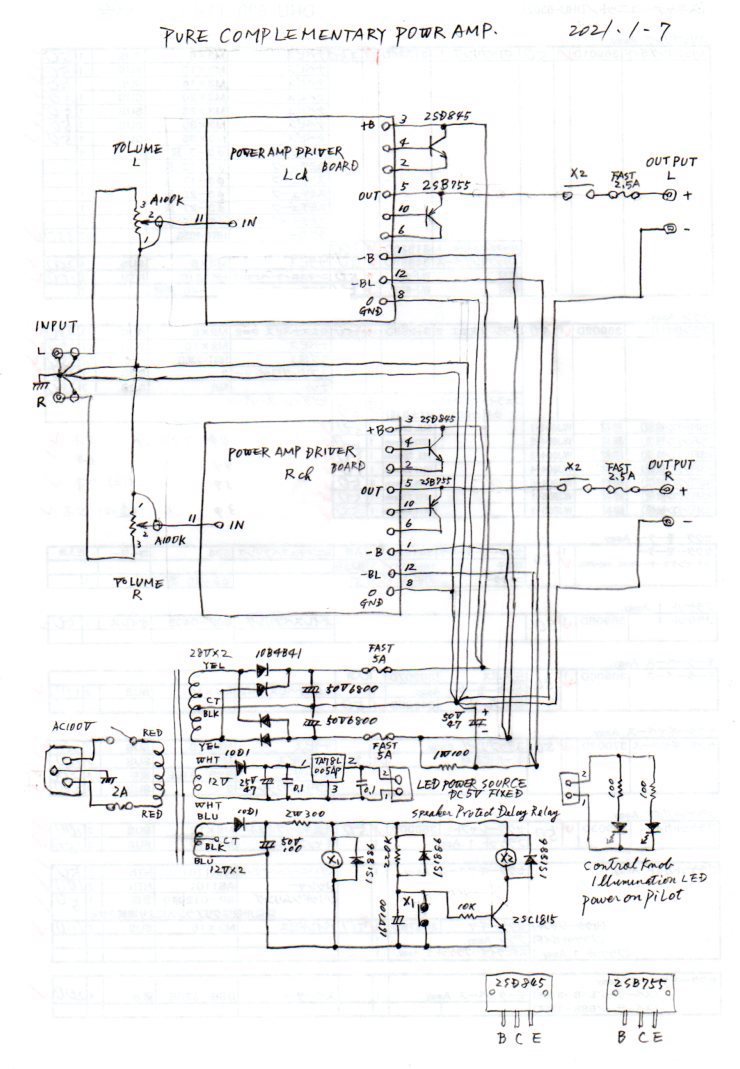 PURE COMPLEMENTARY POWR AMP.
2021.1-7
VOLUME
L
A100K
3
2
1
POWER AMP DRIVER
BOARD
Lch
11
IN
+B
3
2SD845
4
2
OUT
5
2SB755
10
6
-B
1
-BL
12
0
8
GND
X2
FAST
2.5A
OUTPUT
L
+
-
INPUT
L
R
POWER AMP DRIVER
BOARD
Rch
11
IN
1
2
3
A100K
VOLUME
R
+B
3
2SD845
4
2
OUT
5
2SB755
10
6
-B
1
-BL
12
0
8
GND
X2
FAST
2.5A
OUTPUT
R
+
-
28V×2
10B4B41
FAST
5A
YEL
CT
BLK
YEL
50V6800
50V6800
FAST
5A
50V
47
+
-
1W100
AC100V
RED
2A
RED
WHT
10D1
12V
25V
47
0.1
1
TA78L
005AP
2
3
0.1
2
1
LED POWER SOURCE
DC5V FIXED
WHT
BLU
10D1
CT
BLK
BLU
12V×2
50V
100
2W300
Speaker Protect Delay Relay
X1
1S1886
220K
1S1886
16V100
X1
10K
X2
1S1886
2SC1815
2
1
100
100
Control Knob
Illumination LED
power on Pilot
2SD845
B C E
2SB755
B C E